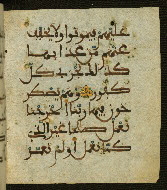 عليهم فيموتوا ولا يخفف
عنهم من عذابها
كذلك نجزي كل
كفور وهم يصطر
خون فيها ربنا اخرجنا
نعمل صالحا غير الذي
كنا نعمل او لم نعمر